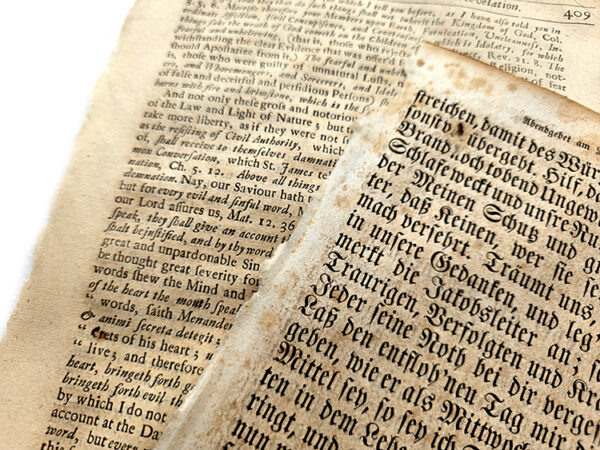 evelation.
409
which I tell you before, as I have also told you in
that they that do such things shall not inherit the Kingdom of God, Col.
Mortifie therefore your Members
ordinate Affection,
things sake the wrath of God cometh on the Children
fearful and unbelieving, (that is, those who
withstanding the clear Evidence that was offer'd
should Apostatize from it.) The fearful and unbel
is, those who were guilty of unnatural Lusts,
and Whoremongers, and Sorcerers, and Idola
of false and deceitful and perfidious Persons)
burns with fire and brimstone, which is the
And not only these gross and notorio
of the Law and Light of Nature; but t
take more liberty, as if they were not ſ
as the reſiſting of Civil Authority, which
of, ſhall receive to themſelves damnati
mon Converſation, which St. James tel
nation, Ch. 5. 12. Above all things
demnation. Nay, our Saviour hath t
but for every evil and ſinful word,
our Lord aſſures us, Mat. 12. 36
ſpeak, they ſhall give an account
ſhalt be juſtified, and by thy word
great and unpardonable Sin
be thought great ſeverity for
words ſhew the Mind and
of the heart the mouth ſpeak
“ words, ſaith Menander
& animi ſecreta detegit ;
“ crets of his heart ;
“ live; and therefore
heart, bringeth forth go
bringeth forth evil th
by which I do not
account at the Da
word, but every
this
Abendgebet am
ſtreichen, damit des Wür
ſonſt übergeht. Hilf, d
Brand noch tobend Ungew
Schlafe weckt und unſre Ru
der Meinen Schutz und g
ter, daß Keinen, wer ſie ſe
mach verſehrt. Träumt uns,
in unſere Gedanken, und leg'
merkt, die Jakobsleiter an; ſe
Traurigen, Verfolgten und Kra
Jeder ſeine Noth bei dir vergeſſ
Laß den entfloh'nen Tag mir d
geben, wie er als Mittwoch
Mittel ſey, ſo ſey ich
ten in dem Lebe
ringt, und
nun